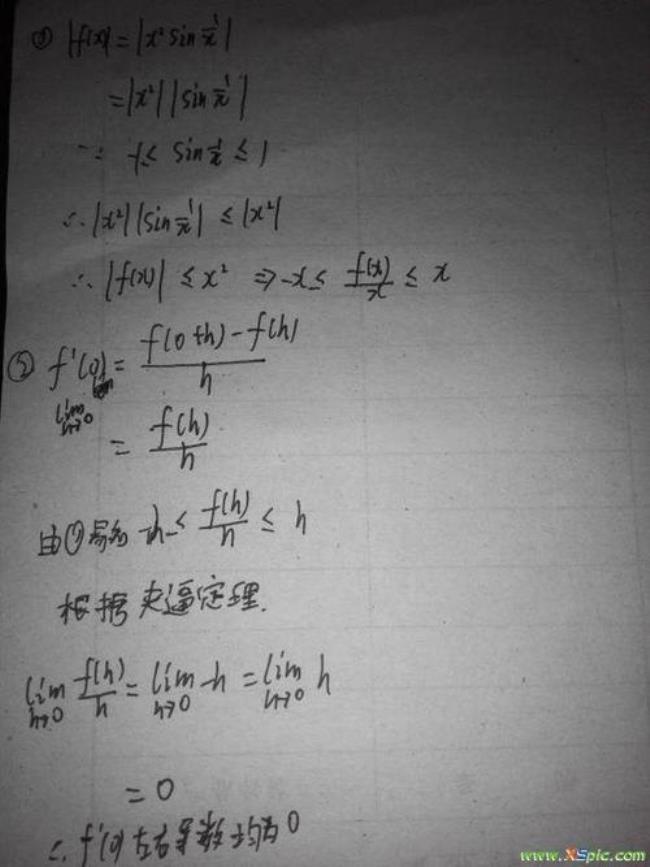 ① |f(x)| = |x² sin 1/x|
= |x²| |sin 1/x|
∵ -1 ≤ sin 1/x ≤ 1
∴ |x²| |sin 1/x| ≤ |x²|
∴ |f(x)| ≤ x² ⇒ -x ≤ f(x)/x ≤ x
② f'(0) = f(0+h) - f(h) / h
lim h→0
= f(h)/h
由①易知 -h ≤ f(h)/h ≤ h
根据夹逼定理.
lim h→0 f(h)/h = lim h→0 -h = lim h→0 h
= 0
∴ f'(0)左右导数均为0
www.XSpic.com